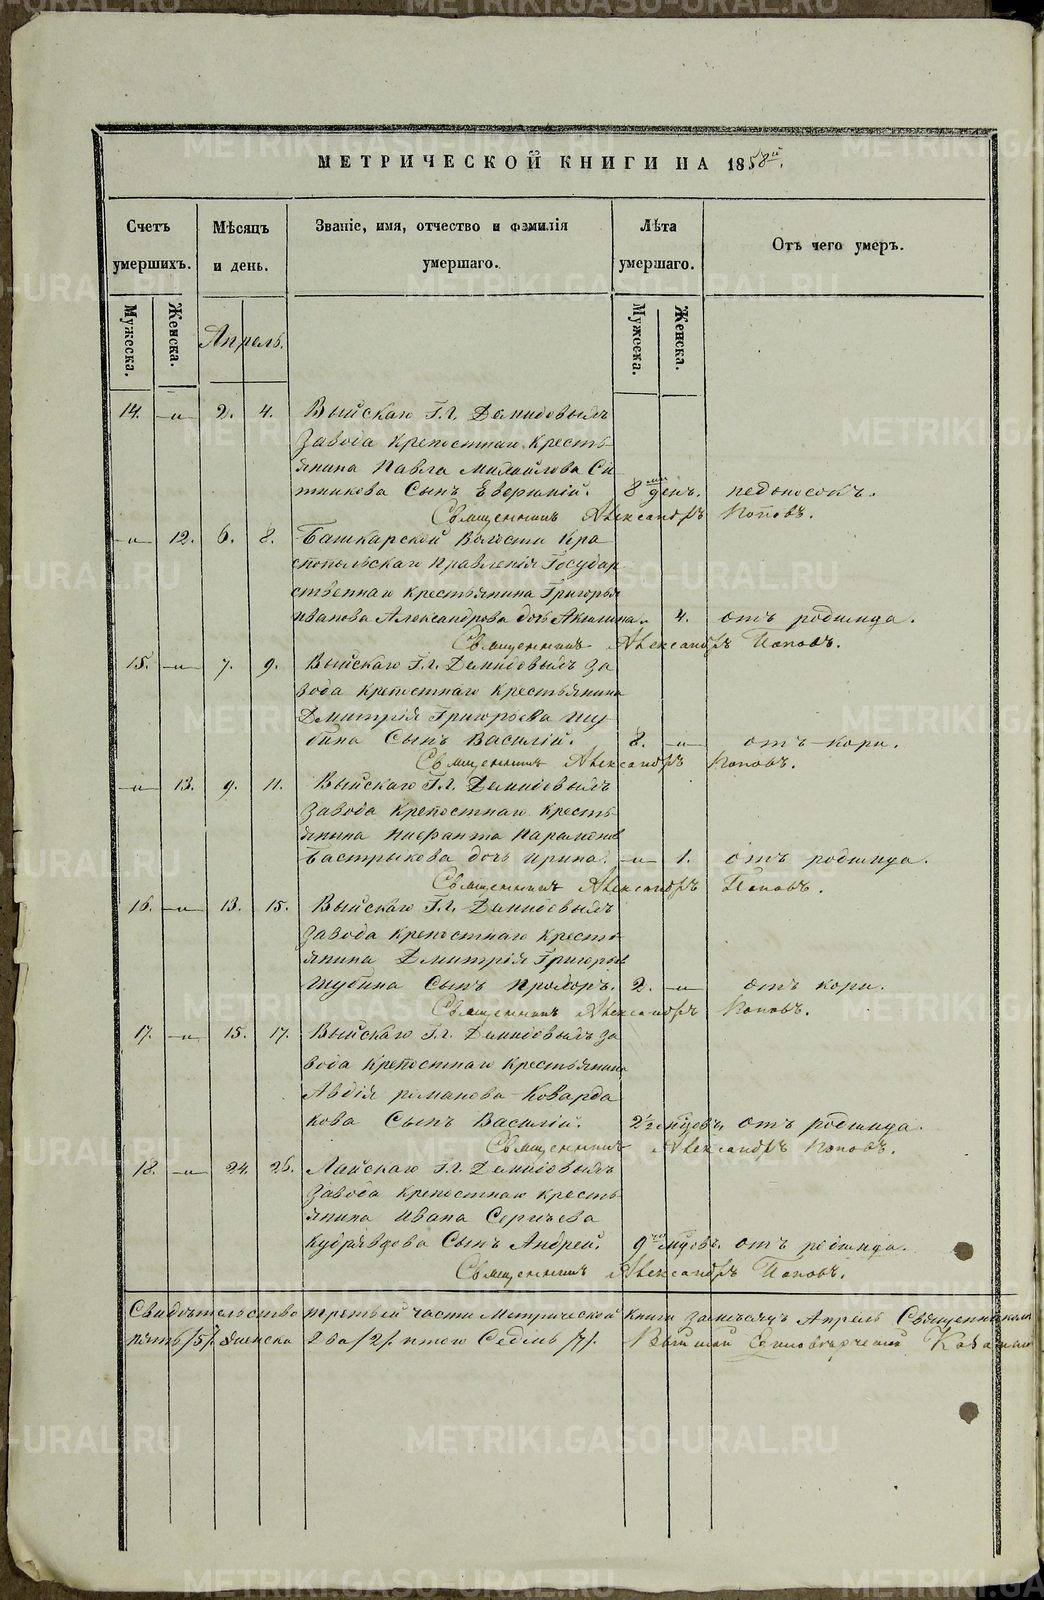 МЕТРИЧЕСКОЙ КНИГИ НА 1858й.
Счетъ умершихъ.
Мѣсяцъ и день.
Званіе, имя, отчество и фамилія умершаго.
Лѣта умершаго.
Отъ чего умеръ.
Мужеска. Женска.
Апрель.
Мужеска. Женска.
14. -„- 2. 4. Выйскаго Г.г. Демидовыхъ
завода крепостнаго кресть
янина Павла Михайлова Си
тникова Сынъ Евфимій. 8 день. недоносокъ.
Священникъ Александръ Поповъ.
-„- 12. 6. 8. Башкарской Волости Кра
снопольскаго Правленія Государ
ственнаго крестьянина Григорья
Иванова Александрова дочь Акилина. 4. отъ родимца.
Священникъ Александръ Поповъ.
15. -„- 7. 9. Выйскаго Г.г. Демидовыхъ за
вода крепостнаго крестьянина
Дмитрія Григорьева Шу-
бина Сынъ Василій. 8. -„- отъ кори.
Священникъ Александръ Поповъ.
-„- 13. 9. 11. Выйскаго Г.г. Демидовыхъ
завода крепостнаго кресть
янина Нифанта Парамонов
Бастрыкова дочь Ирина. -„- 1. отъ родимца.
Священникъ Александръ Поповъ.
16. -„- 13. 15. Выйскаго Г.г. Демидовыхъ
завода крепостнаго кресть
янина Дмитрія Григорьев
Шубина Сынъ Прохоръ. 2. -„- отъ кори.
Священникъ Александръ Поповъ.
17. -„- 15. 17. Выйскаго Г.г. Демидовыхъ за
вода крепостнаго крестьянина
Авдія романова Коварда
кова Сынъ Василій. 2½ мѣсцовъ. отъ родимца.
Священникъ Александръ Поповъ.
18. -„- 24. 26. Лайскаго Г.г. Демидовыхъ
завода крепостнаго кресть
янина Ивана Сергѣева
Кудрявцова Сынъ Андрей. 9 мѣсцовъ. отъ родимца.
Священникъ Александръ Поповъ.
Свидѣтельство третьей части Метрической Книги за мѣсяцъ Апрель Священникомъ
пять /5/. женска два /2/. итого Седмь /7/.